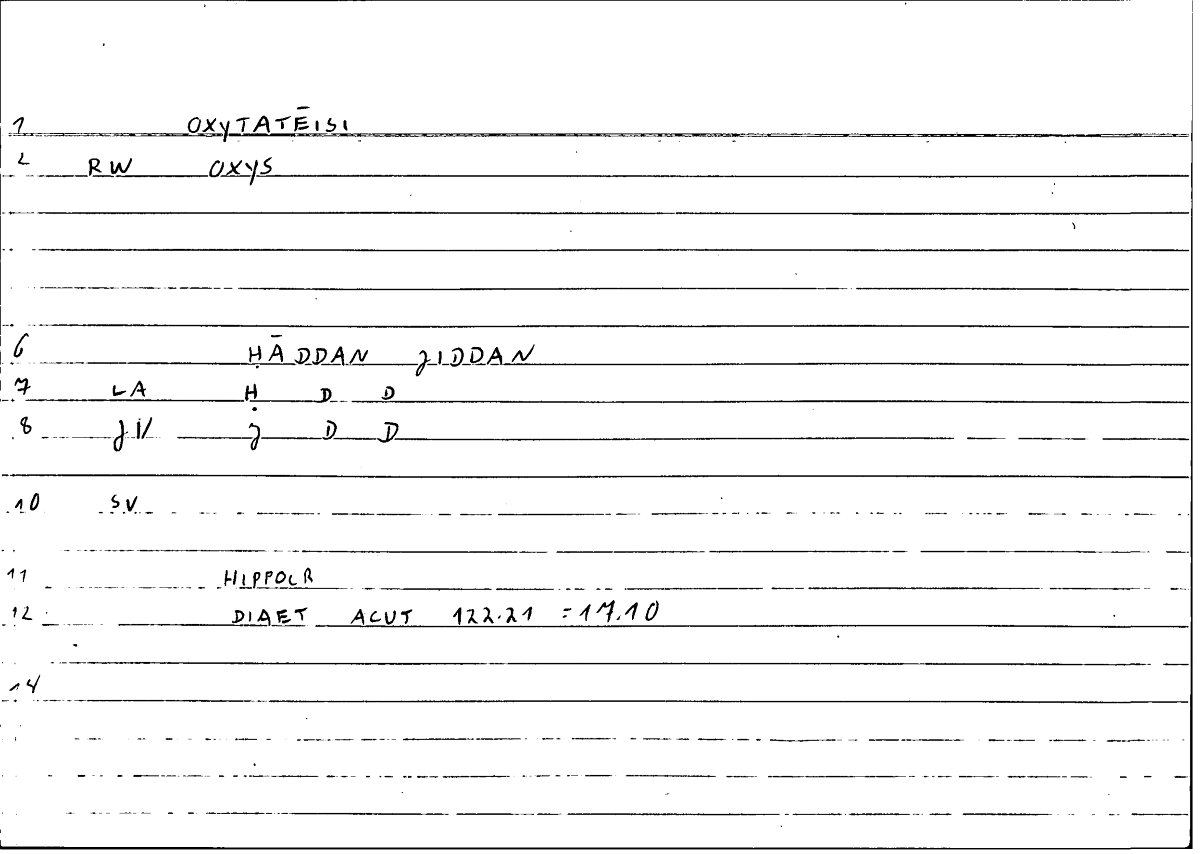 1 OXYTATĒISI
2 RW OXYS
6 ḤĀDDAN JIDDAN
7 LA Ḥ D D
8 JIV J D D
10 SV
11 HIPPOCR
12 DIAET ACUT 122.21 =17.10
14